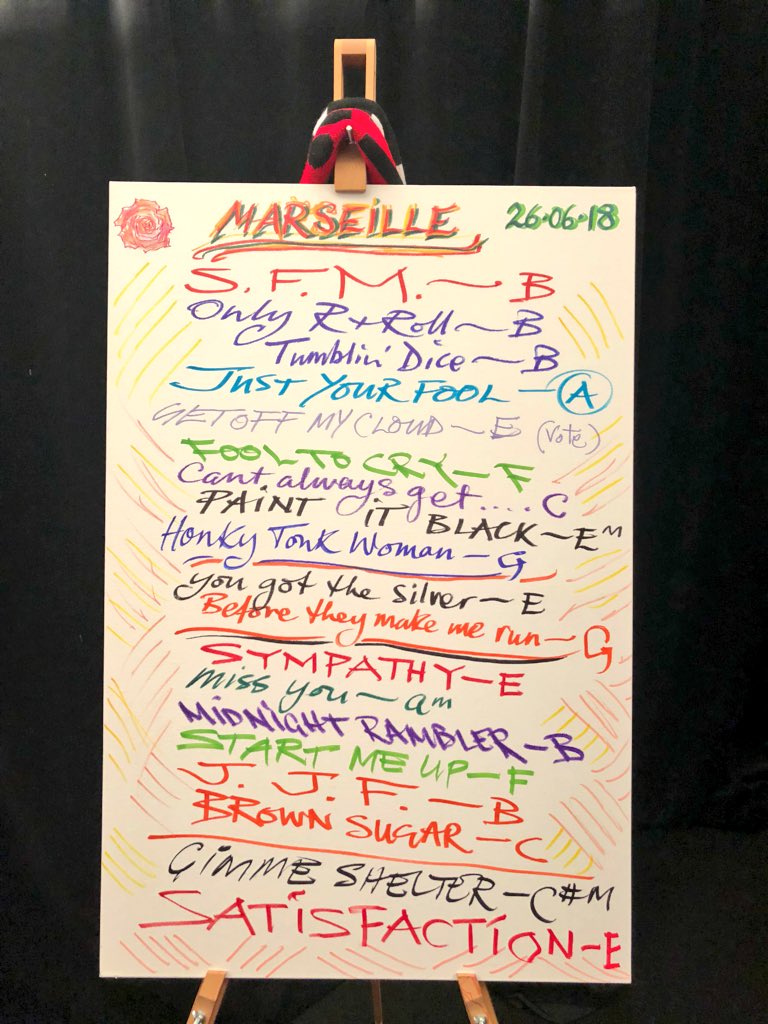 MARSEILLE 26·06·18
S. F. M. ~ B
Only R+Roll ~ B
Tumblin' Dice ~ B
JUST YOUR FOOL - A
GET OFF MY CLOUD ~ E (vote)
FOOL TO CRY - F
Cant always get.... C
PAINT IT BLACK - Em
Honky Tonk Woman - G
you got the silver - E
Before they make me run - G
SYMPATHY - E
miss you ~ am
MIDNIGHT RAMBLER - B
START ME UP - F
J. J. F. - B
BROWN SUGAR - C
GIMME SHELTER - C#M
SATISFACTION - E